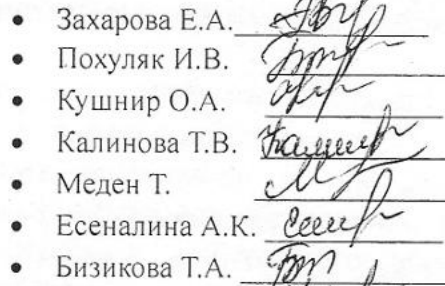 • Захарова Е.А.
• Похуляк И.В.
• Кушнир О.А.
• Калинова Т.В.
• Меден Т.
• Есеналина А.К.
• Бизикова Т.А.